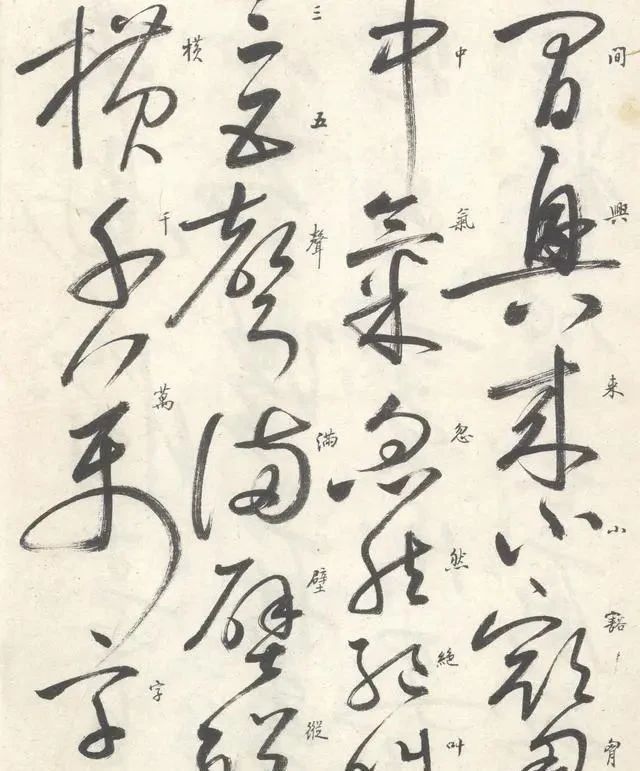 間興来小豁胷
中氣忽然絕叫
三五聲滿壁縱
横千萬字